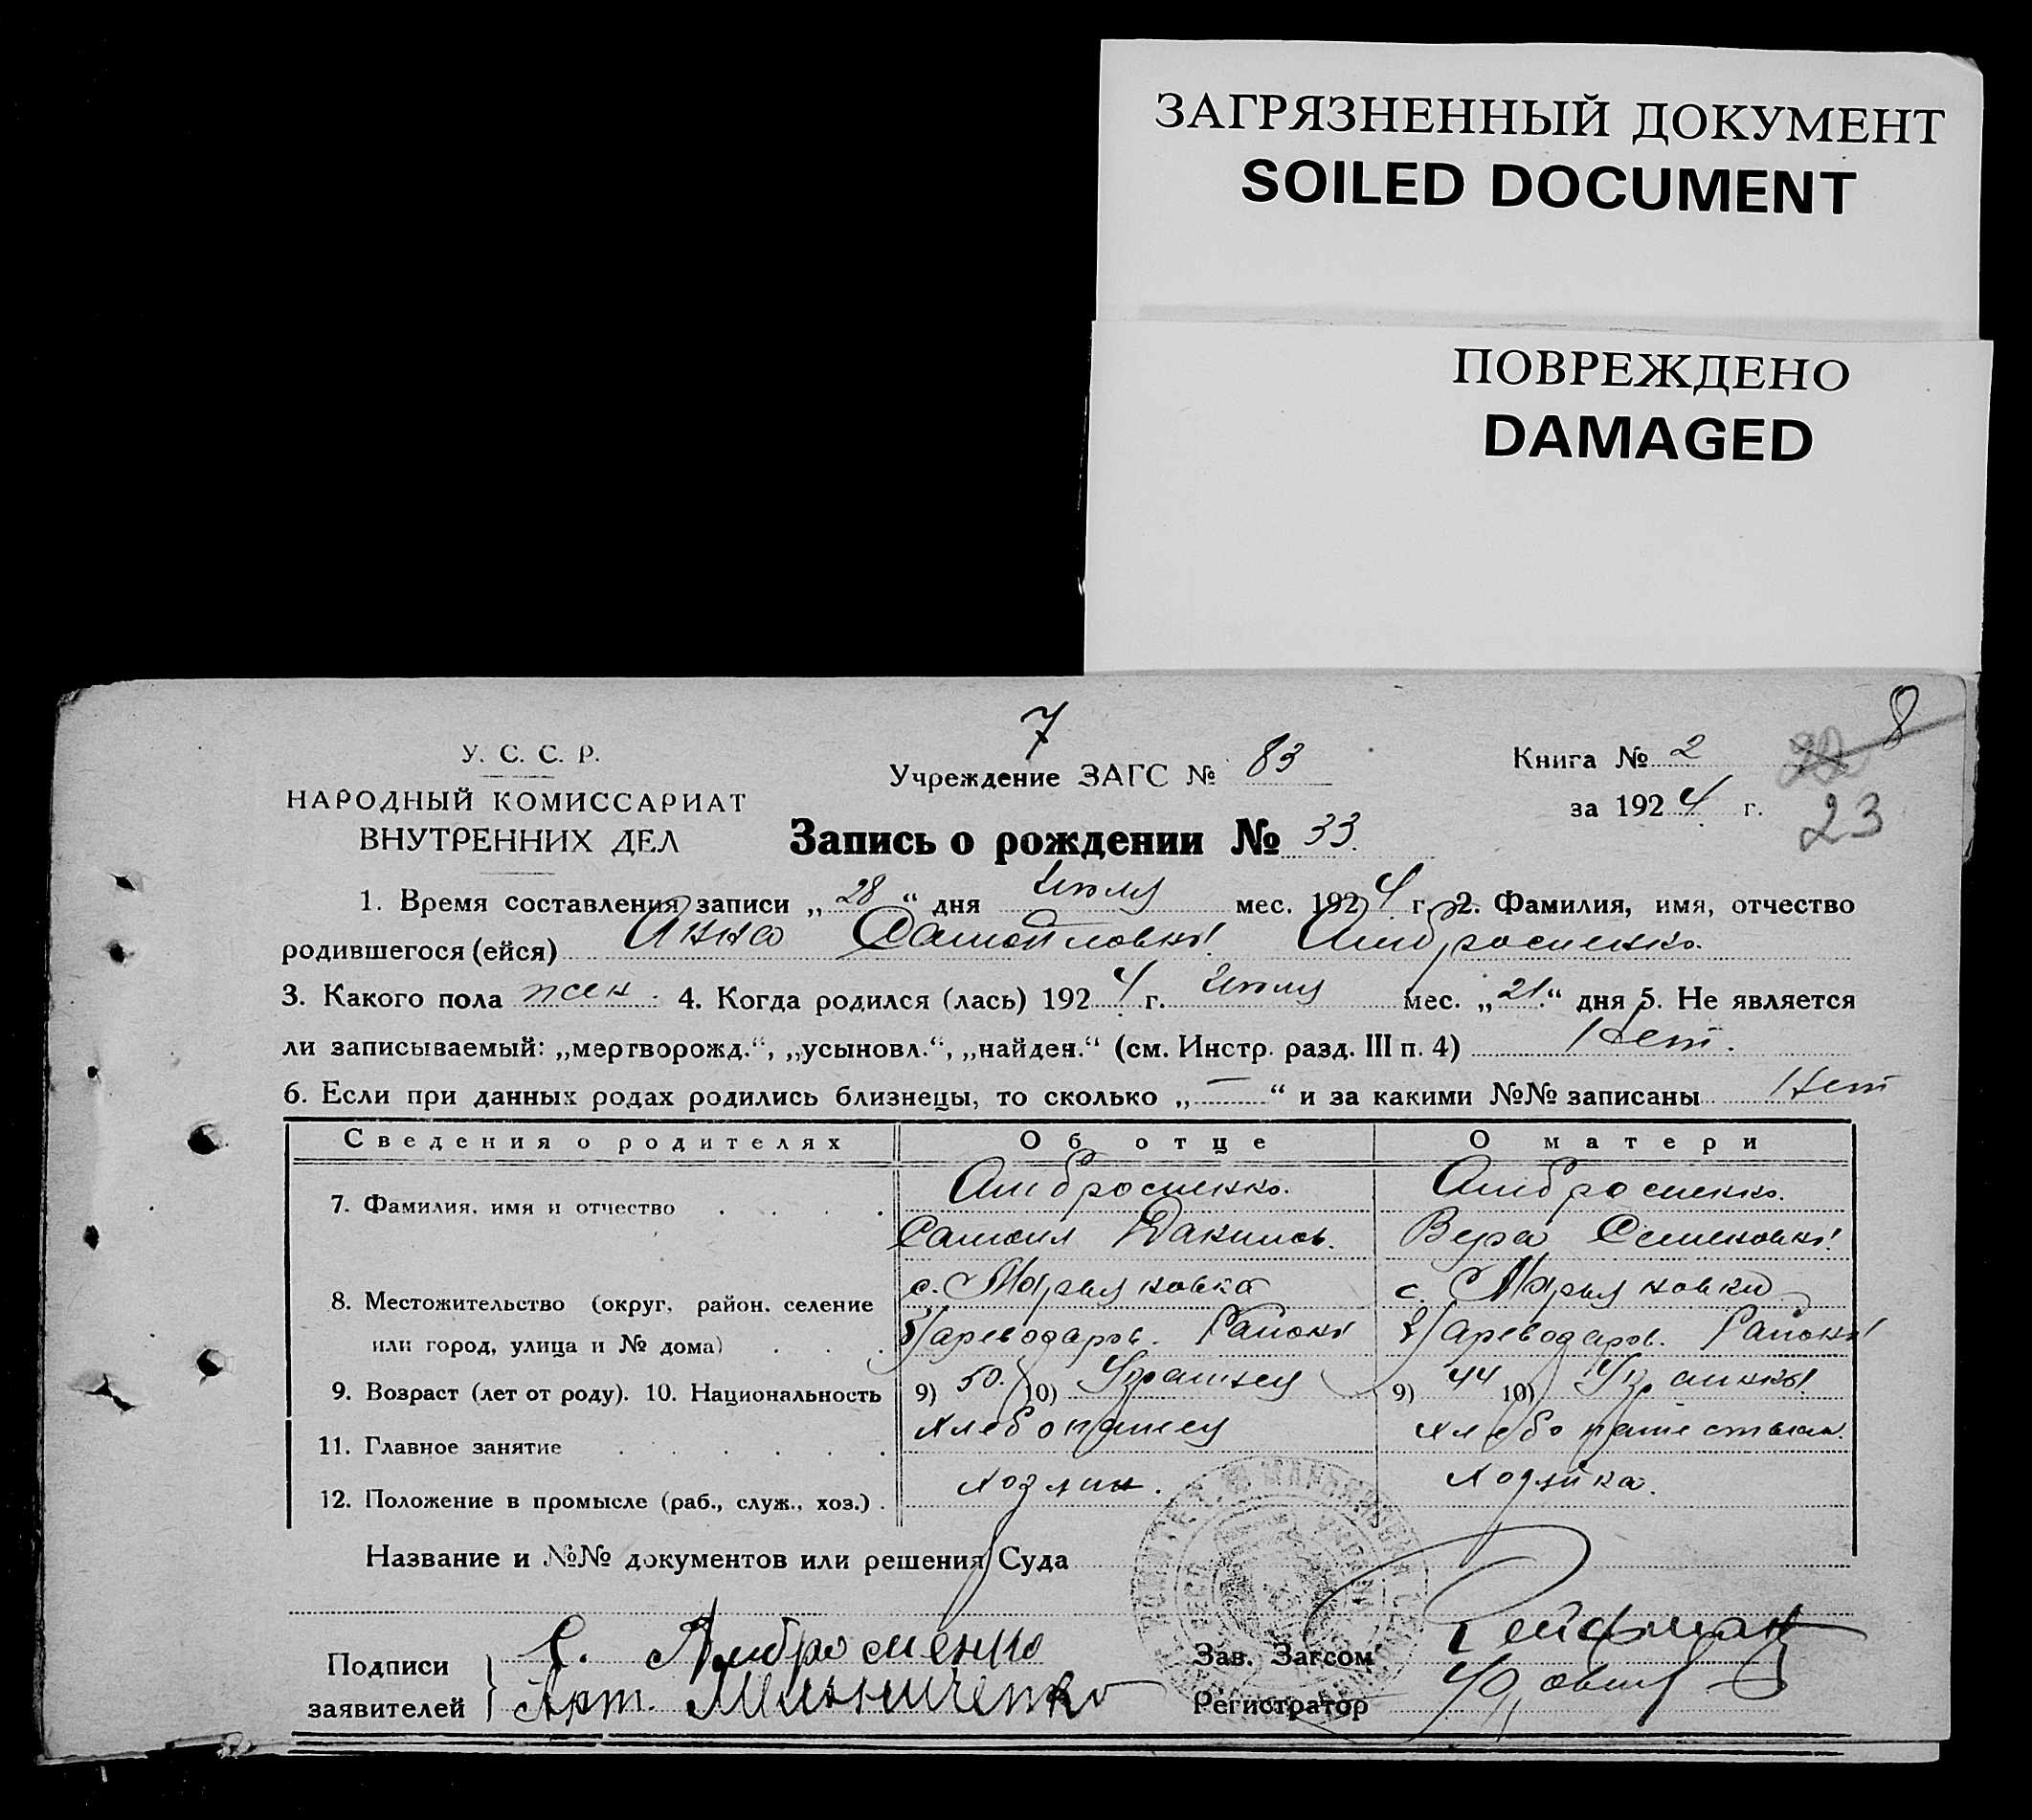 ЗАГРЯЗНЕННЫЙ ДОКУМЕНТ
SOILED DOCUMENT
ПОВРЕЖДЕНО
DAMAGED
7
8
У. С. С. Р.
НАРОДНЫЙ КОМИССАРИАТ
ВНУТРЕННИХ ДЕЛ
Учреждение ЗАГС № 83
Книга № 2
за 1924 г.
23
Запись о рождении № 33.
1. Время составления записи „28“ дня Июля мес. 1924 г. 2. Фамилия, имя, отчество
родившегося (ейся) Анна Самойловна Амбросменко.
3. Какого пола жен. 4. Когда родился (лась) 1924 г. Июля мес. „21.“ дня 5. Не является
ли записываемый: „мертворожд.“, „усыновл.“, „найден.“ (см. Инстр. разд. III п. 4) Нет.
6. Если при данных родах родились близнецы, то сколько „—“ и за какими №№ записаны Нет
Сведения о родителях Об отце О матери
7. Фамилия, имя и отчество Амбросменко. Амбросменко.
Самоил Вера Семеновна
8. Местожительство (округ, район, селение с. Марьяновка с. Марьяновки
или город, улица и № дома) Цареводаров. Района Цареводаров. Района
9. Возраст (лет от роду). 10. Национальность 9) 50. 10) Украинец 9) 44 10) Украинка
11. Главное занятие Хлебопашец
12. Положение в промысле (раб., служ., хоз.) Хозяин. Хозяйка.
Название и №№ документов или решения Суда
Подписи заявителей
С. Амбросменко
Арт. Мельниченко
Зав. Загсом Рейфман
Регистратор